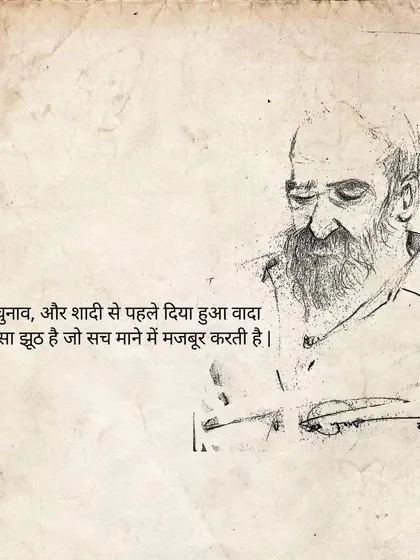 और शादी से पहले दिया हुआ वादा
झूठ है जो सच माने में मजबूर करती है |